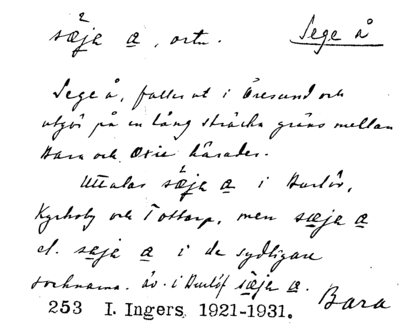 sæja a, ortn. Sege å
Sege å, faller ut i Öresund och
utgör på en lång sträcka gräns mellan
Bara och Oxie härader.
Uttalas sæja a i Burlöv,
Kyrkoby och Tottarp, men sæja a
el. saja a i de sydligare
socknarna. äv. i Burlöf sæja a.
253 I. Ingers 1921-1931. Bara